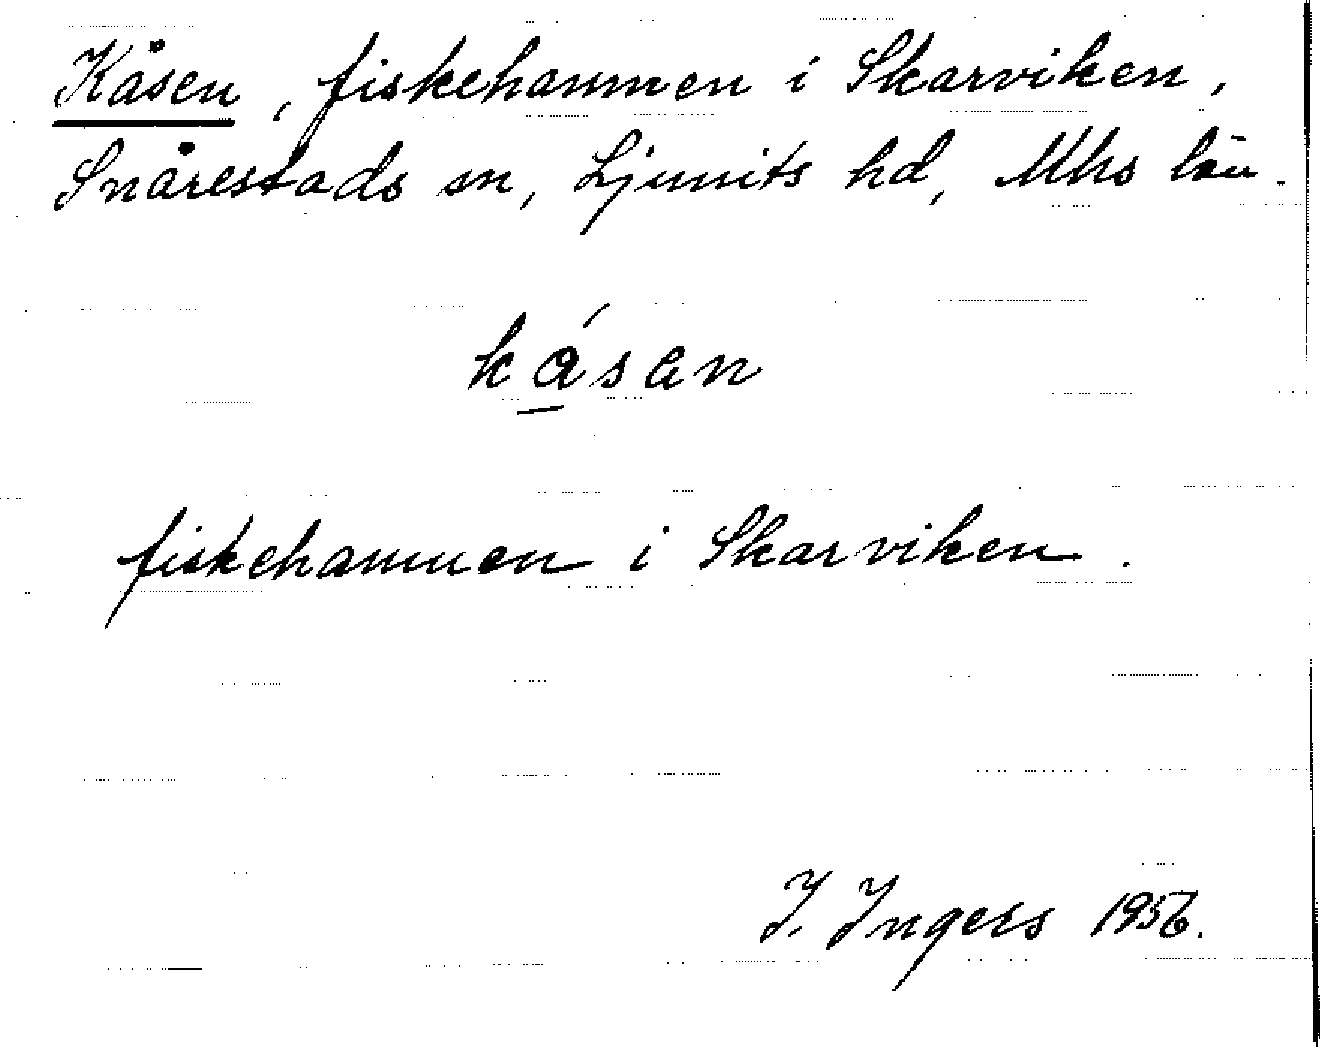 Kåsen, fiskehamnen i Skarviken,
Snårestads sn, Ljunits hd, Mhs län.
kåsen
fiskehamnen i Skarviken.
I. Ingers 1956.